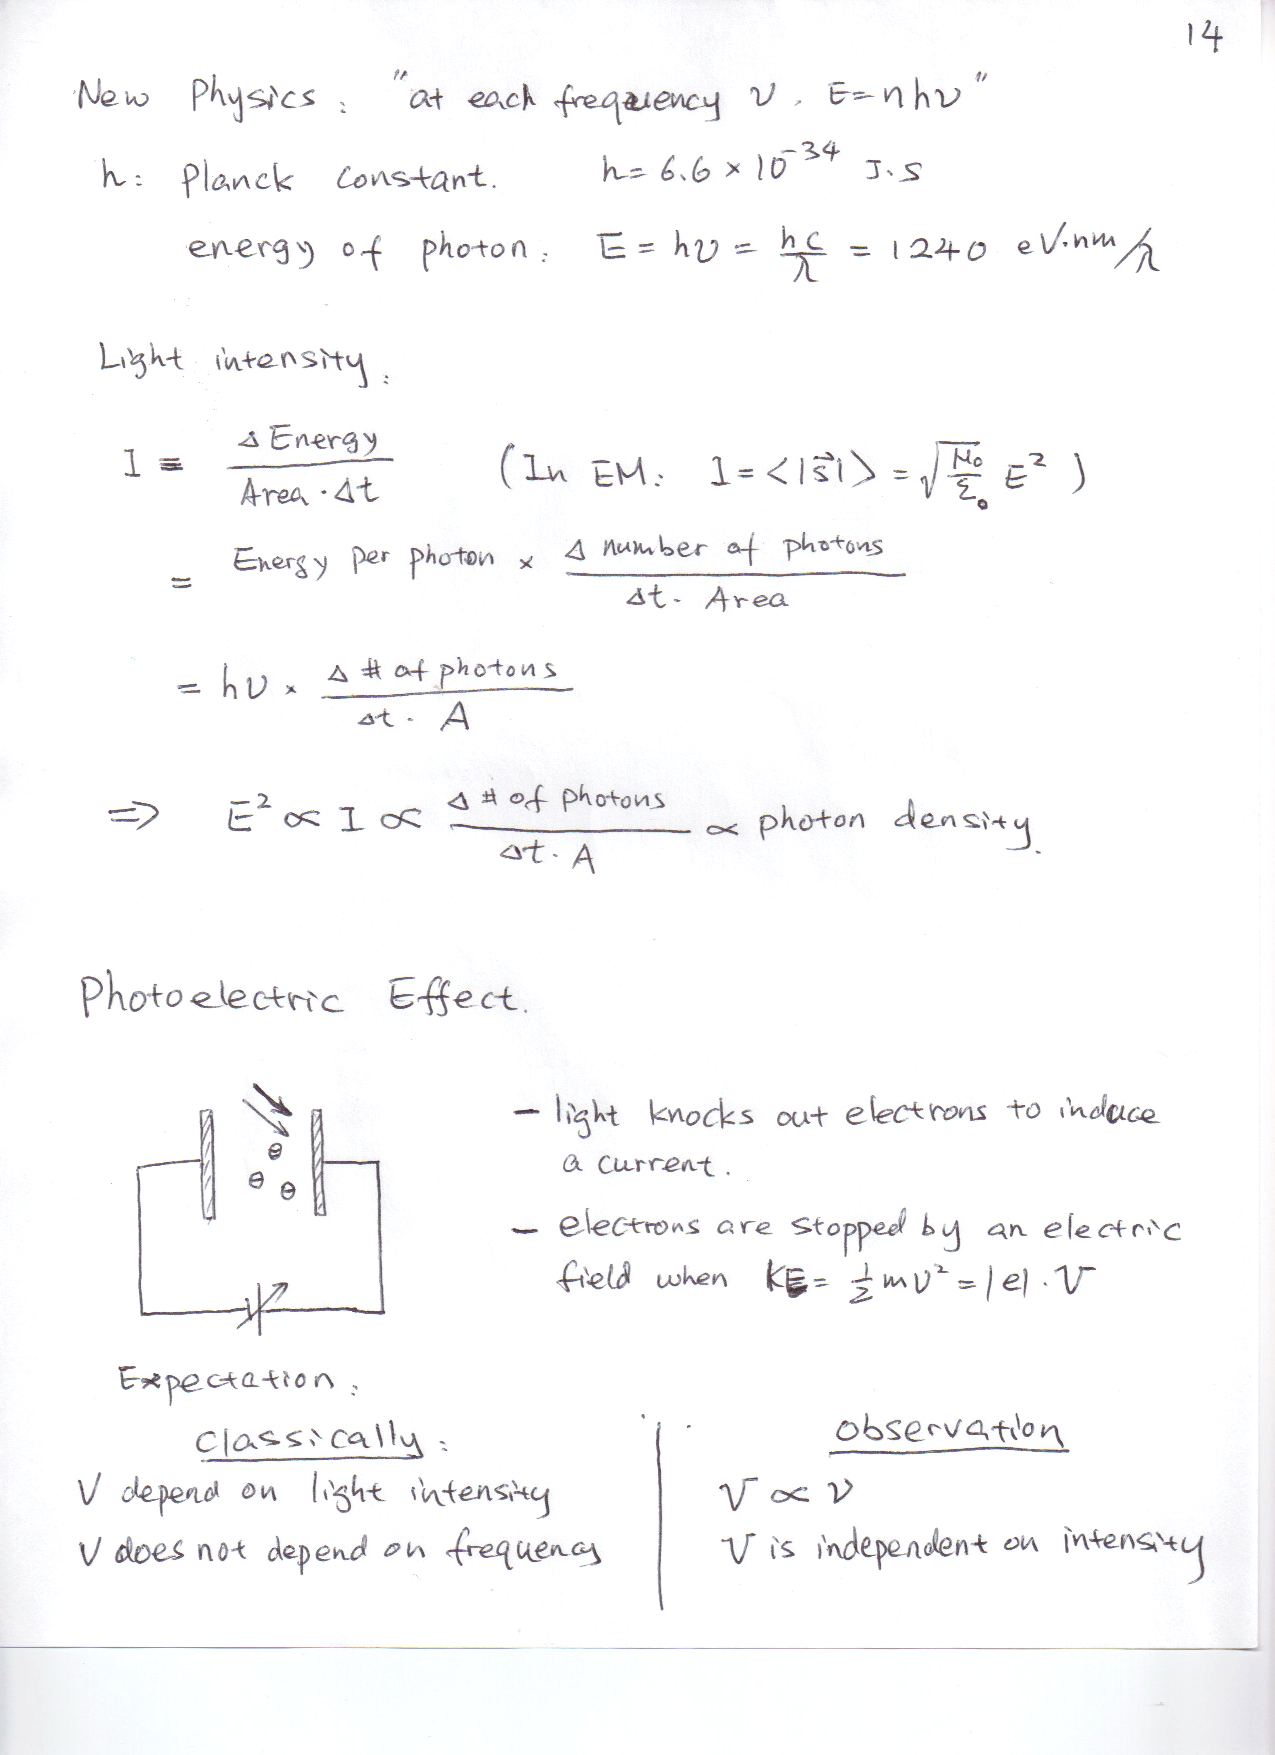 14
New Physics: "at each frequency ν, E=nhν"
h: Planck constant. h= 6.6 × 10^-34 J.S
energy of photon: E = hν = hc/λ = 1240 eV·nm/λ
Light intensity:
I = Δ Energy / Area·Δt (In EM: I = <|S⃗|> = √(μ₀/ε₀) E² )
= Energy per photon × Δ number of photons / Δt. Area
= hν × Δ # of photons / Δt. A
⇒ E² ∝ I ∝ Δ # of photons / Δt. A ∝ photon density.
Photoelectric Effect.
- light knocks out electrons to induce
a current.
- electrons are stopped by an electric
field when KE = ½mv² = |e|·V
Expectation:
classically:
V depend on light intensity
V does not depend on frequency
observation
V ∝ ν
V is independent on intensity